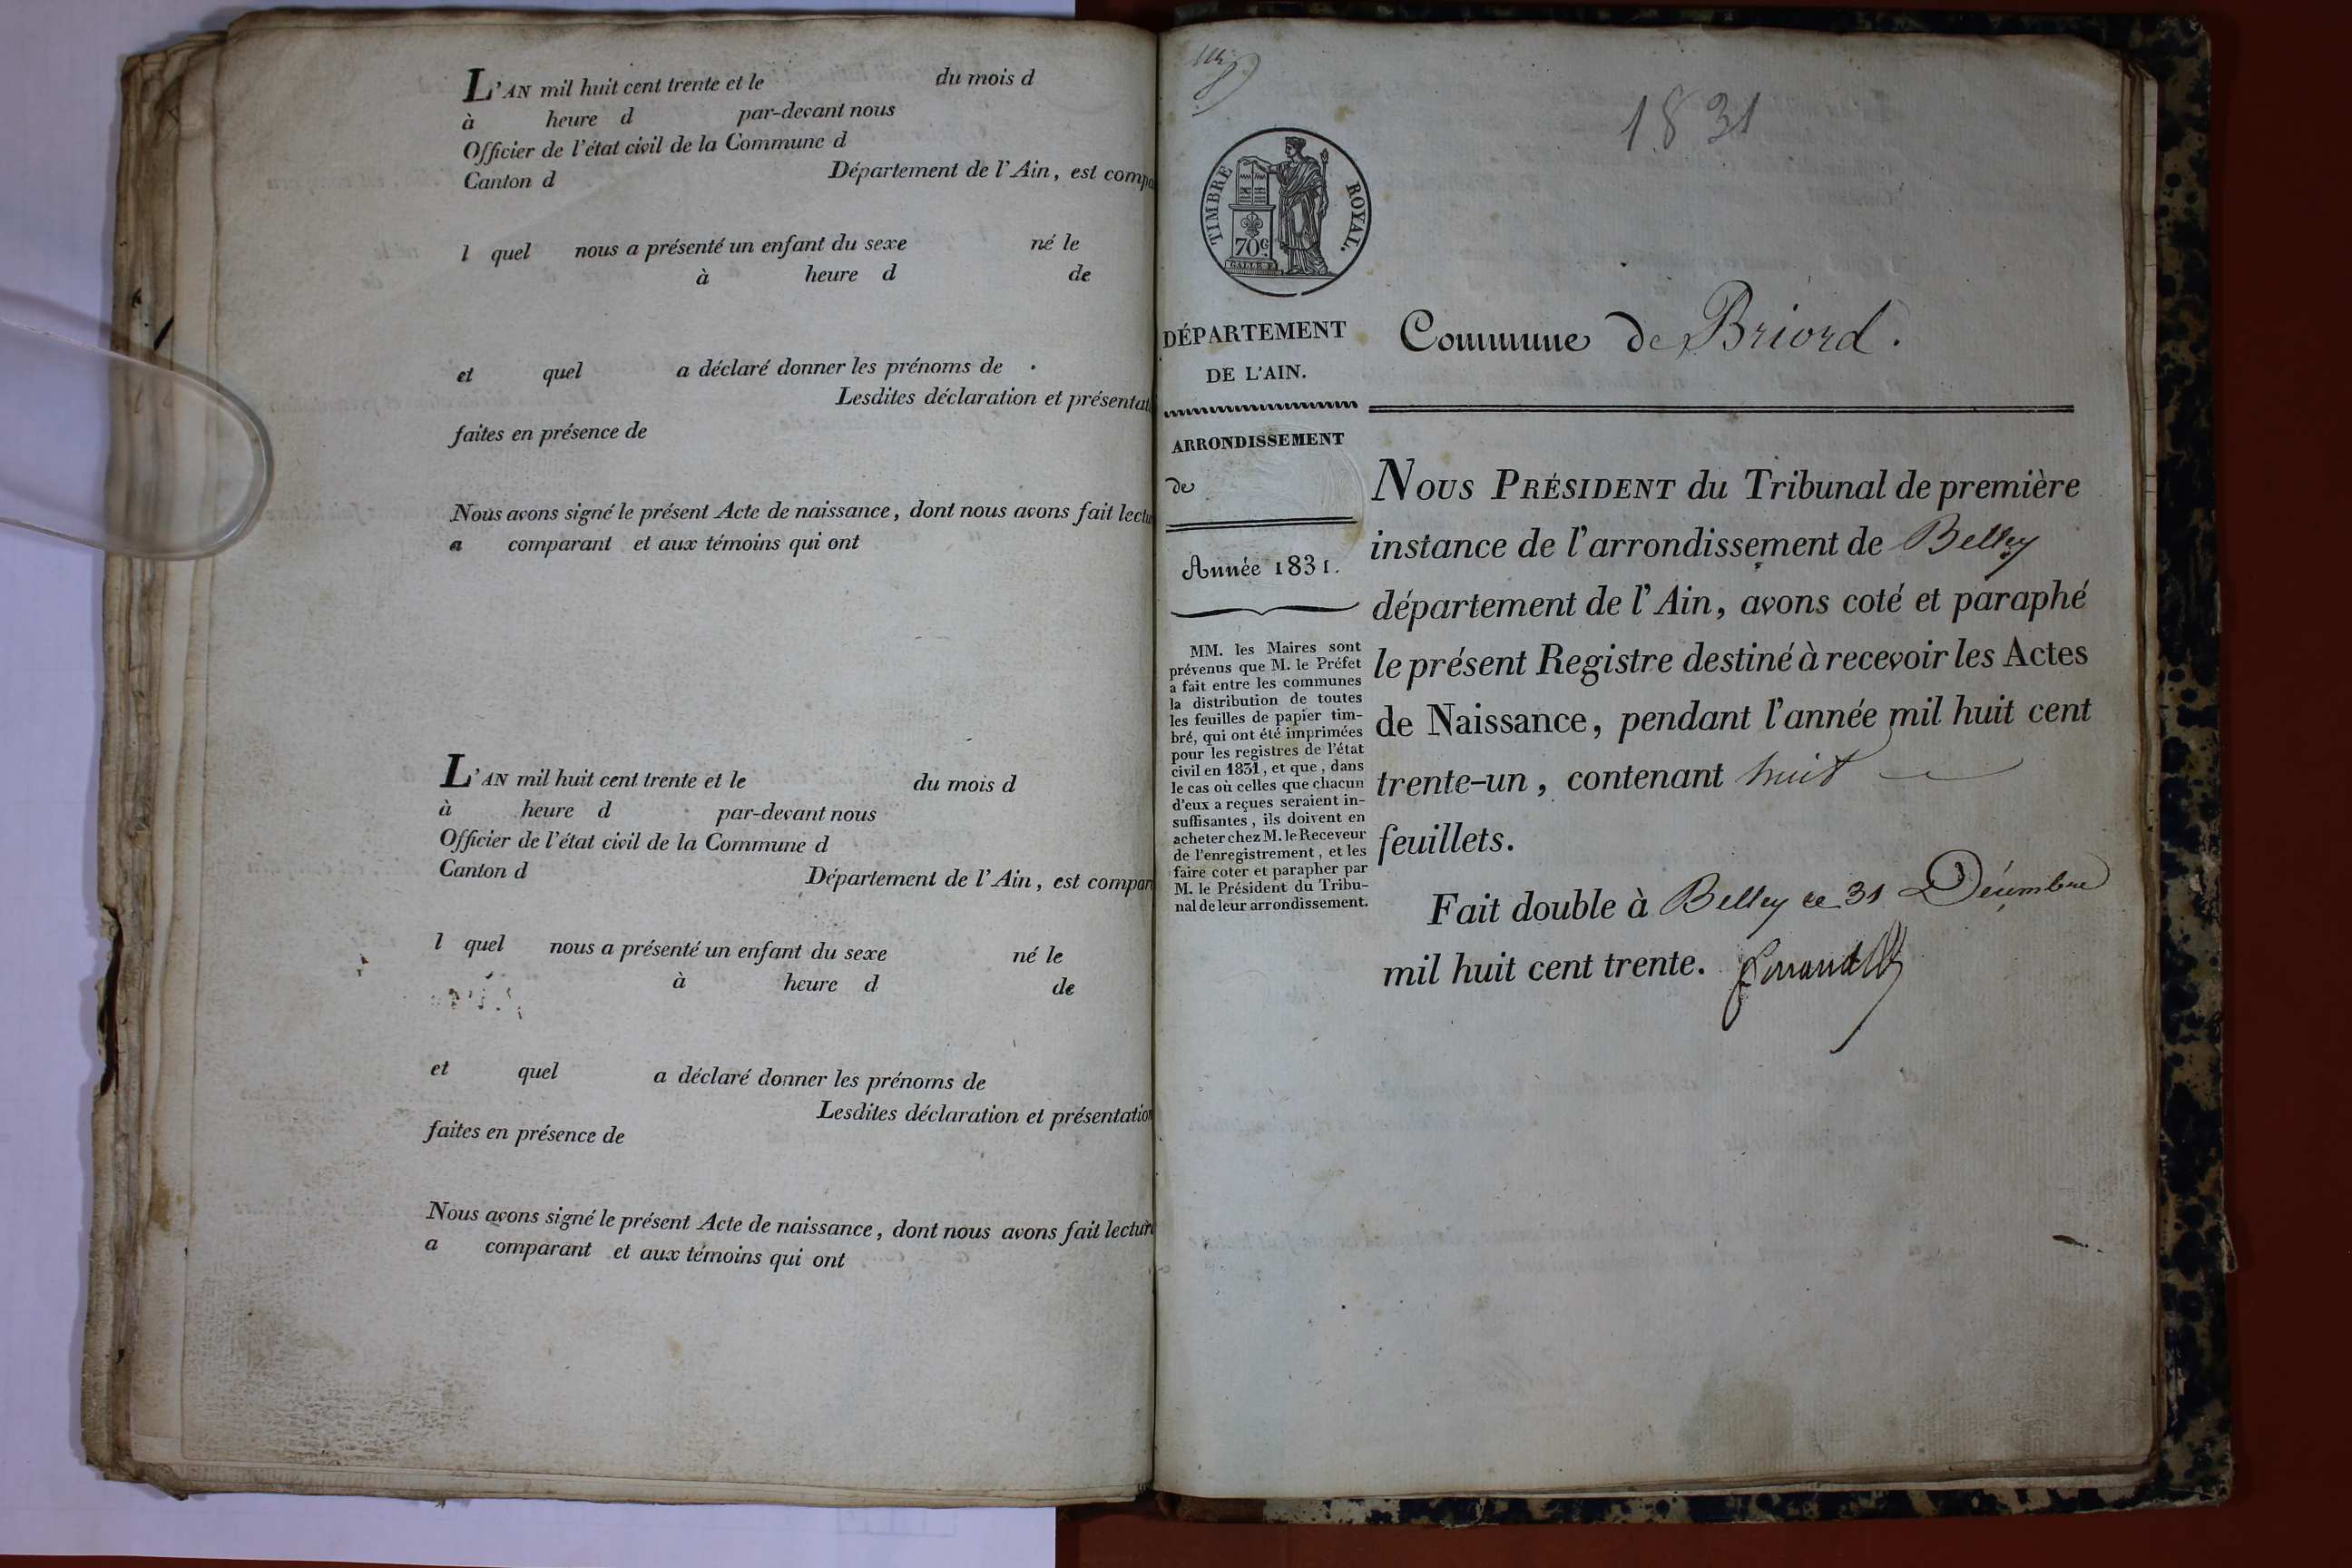 L'AN mil huit cent trente et le du mois d
à heure d par-devant nous
Officier de l'état civil de la Commune d
Canton d Département de l'Ain, est compa
l quel nous a présenté un enfant du sexe né le
à heure d de
et quel a déclaré donner les prénoms de
Lesdites déclaration et présentat
faites en présence de
Nous avons signé le présent Acte de naissance, dont nous avons fait lectu
a comparant et aux témoins qui ont
L'AN mil huit cent trente et le du mois d
à heure d par-devant nous
Officier de l'état civil de la Commune d
Canton d Département de l'Ain, est compar
l quel nous a présenté un enfant du sexe né le
à heure d de
et quel a déclaré donner les prénoms de
Lesdites déclaration et présentation
faites en présence de
Nous avons signé le présent Acte de naissance, dont nous avons fait lectur
a comparant et aux témoins qui ont
1831
TIMBRE ROYAL.
70c.
DÉPARTEMENT
DE L'AIN.
ARRONDISSEMENT
de
Année 1831.
MM. les Maires sont
prévenus que M. le Préfet
a fait entre les communes
la distribution de toutes
les feuilles de papier tim-
bré, qui ont été imprimées
pour les registres de l'état
civil en 1831, et que, dans
le cas où celles que chacun
d'eux a reçues seraient in-
suffisantes, ils doivent en
acheter chez M. le Receveur
de l'enregistrement, et les
faire coter et parapher par
M. le Président du Tribu-
nal de leur arrondissement.
Commune de Briord.
NOUS PRÉSIDENT du Tribunal de première
instance de l'arrondissement de Belley
département de l'Ain, avons coté et paraphé
le présent Registre destiné à recevoir les Actes
de Naissance, pendant l'année mil huit cent
trente-un, contenant huit
feuillets.
Fait double à Belley ce 31 Décembre
mil huit cent trente.